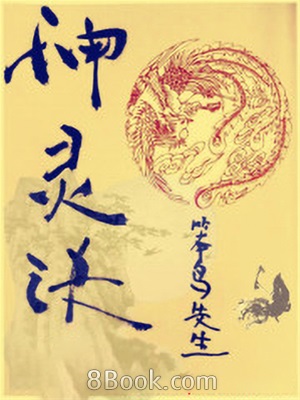 神灵决
笨鸟先生
8Book.com